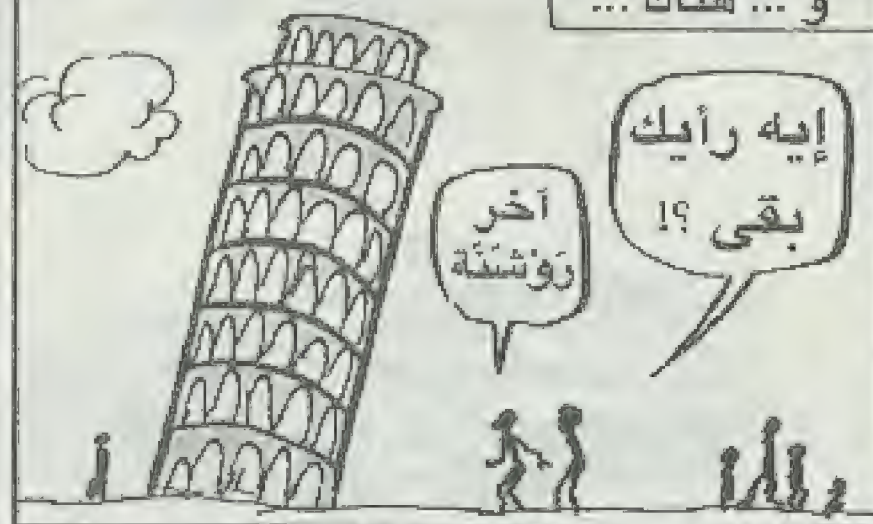 و ... هناك ...
إيه رأيك
بقى ؟!
آخر
رَوْشَنَة